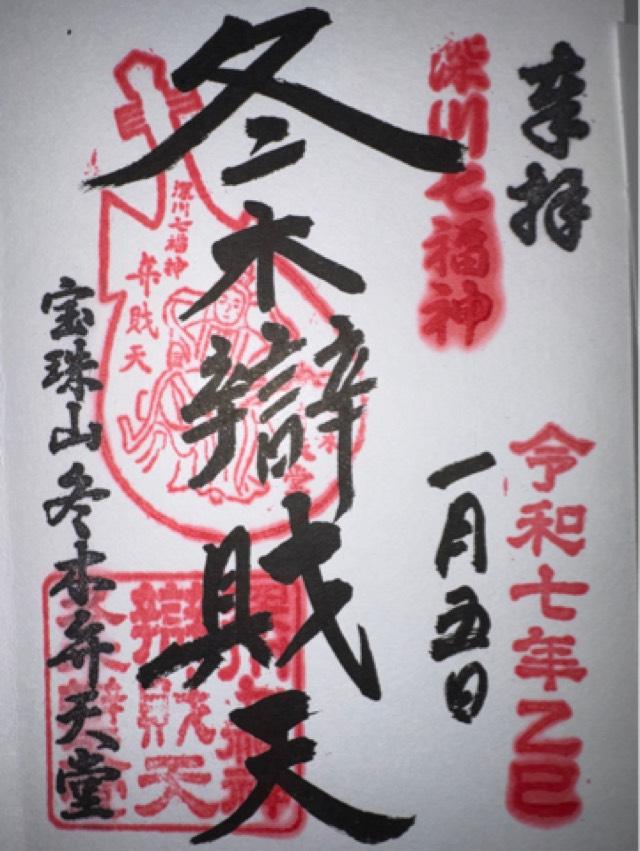 奉拝
令和七年乙巳
深川七福神
一月五日
冬木辯財天
深川七福神
弁財天
宝珠山冬木弁天堂
深川七福神
辯財天
冬木辯天堂